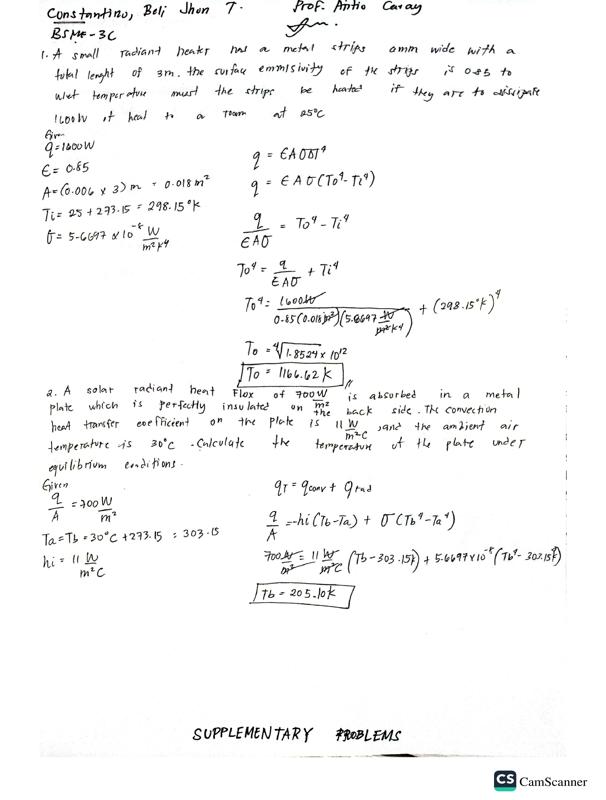 Constantino, Beli Jhon T. Prof. Antio Caray
BSME-3C
1. A small radiant heater has a metal strips 6mm wide with a
total lenght of 3m. the surface emmisivity of the strips is 0.85 to
what temperature must the strips be heated if they are to dissipate
1600W of heat to a room at 25°C
Given
q=1600W
ϵ= 0.85
A=(0.006 x 3)m = 0.018m²
Ti= 25+273.15 = 298.15°k
σ= 5.6697 x10⁻⁸ W/m²k⁴
q = ϵAσΔT⁴
q = ϵAσ(To⁴-Ti⁴)
q/ϵAσ = To⁴-Ti⁴
To⁴ = q/ϵAσ + Ti⁴
To⁴= 1600W/0.85(0.018m²)(5.6697 W/m²k⁴) + (298.15°k)⁴
To = ⁴√1.8524x10¹²
To = 1166.62 K
2. A solar radiant heat flux of 700 W/m² is absorbed in a metal
plate which is perfectly insulated on the back side. The convection
heat transfer coefficient on the plate is 11 W/m²C, and the ambient air
temperature is 30°C. Calculate the temperature of the plate under
equilibrium conditions.
Given
q/A = 700 W/m²
Ta=Tb=30°C+273.15 = 303.15
hi = 11 W/m²C
qT = qconv + qrad
q/A = hi(Tb-Ta) + σ(Tb⁴-Ta⁴)
700 W/m² = 11 W/m²C (Tb-303.15k) + 5.6697x10⁻⁸(Tb⁴-303.15k⁴)
Tb = 205.10k
SUPPLEMENTARY PROBLEMS
CS CamScanner